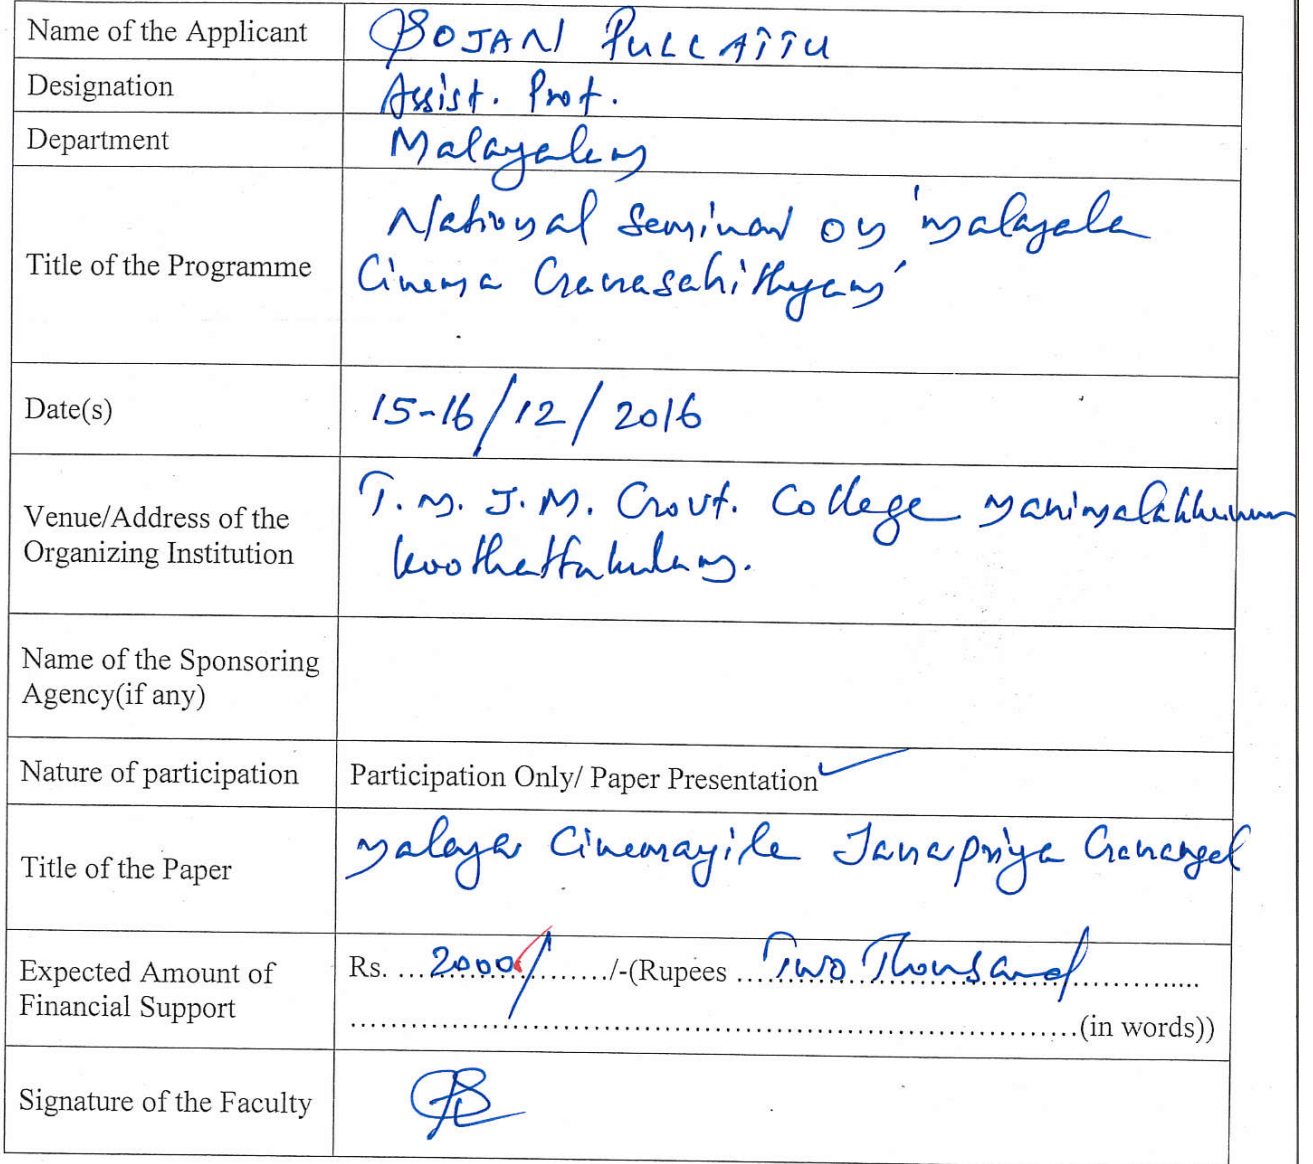 Name of the Applicant BOJAN PULLATTU
Designation Assist. Prof.
Department Malayalam
Title of the Programme National Seminar on 'malayala
Cinema Ganasahithyam'
Date(s) 15-16/12/2016
Venue/Address of the
Organizing Institution
T.M.J.M. Govt. College Manimalakkunnu
koothattukulam.
Name of the Sponsoring
Agency(if any)
Nature of participation Participation Only/ Paper Presentation ✓
Title of the Paper malaya Cinemayile Janapriya Ganangal
Expected Amount of
Financial Support
Rs. ...2000/........./-(Rupees ...Two Thousand...............
...............................................................(in words))
Signature of the Faculty